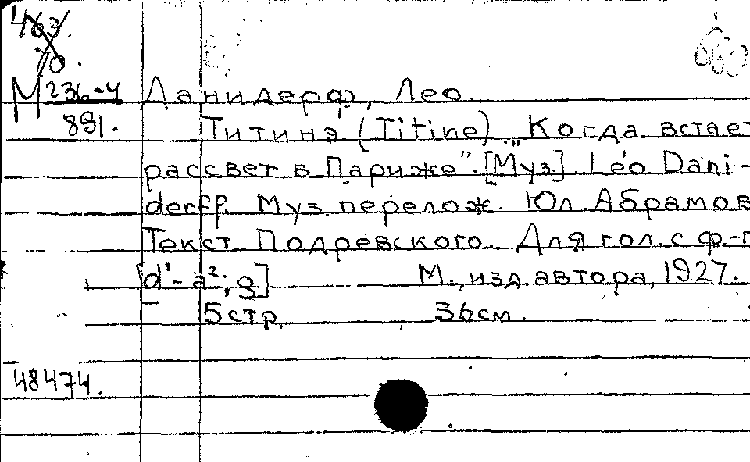 М 236-4
891.
Данидерф, Лео
Титина (Titine) „Когда встает
рассвет в Париже". [Муз] Léo Dani-
derff. Муз перелож. Юл Абрамов
Текст Подревского. Для гол. с ф-п
[d¹-a²; g] М., изд. автора, 1927.
5 стр. 36 см.
48474.